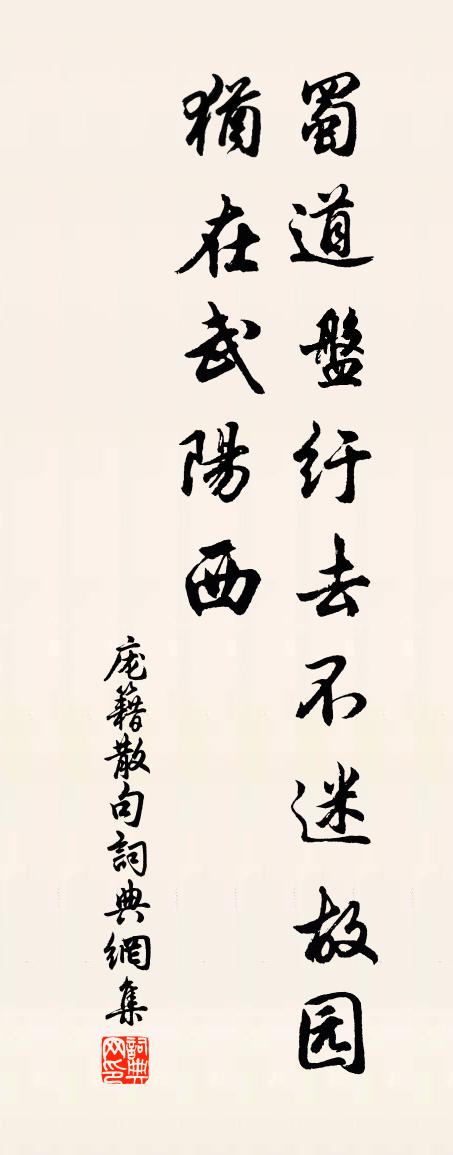 蜀道盤纡去不迷故园
猶在武陽西
庞籍散句詞典網集
詞典网印